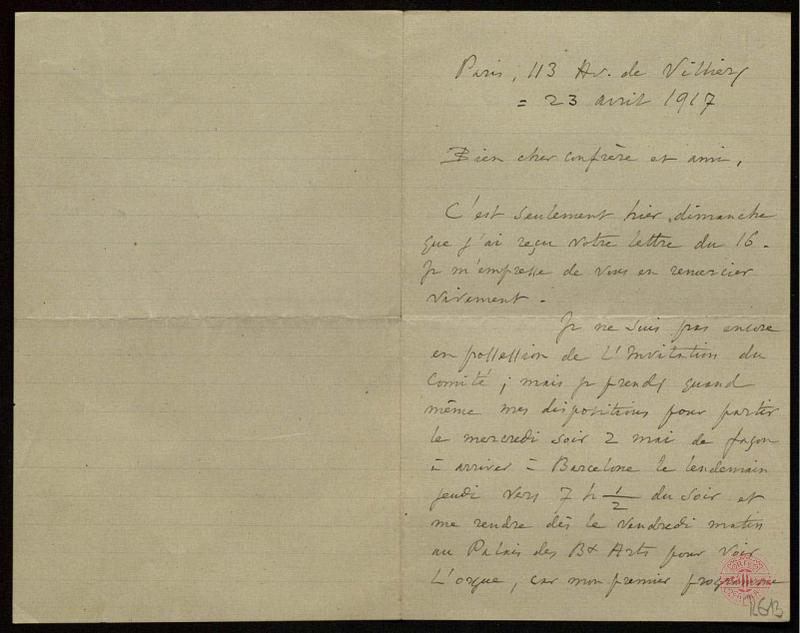 Paris, 113 Av. de Villiers
= 23 avril 1917
Bien cher confrère et ami,
C'est seulement hier, dimanche
que j'ai reçu votre lettre du 16.
Je m'empresse de vous en remercier
vivement.
Je ne suis pas encore
en possession de L'Invitation du
Comité ; mais je prends quand
même mes dispositions pour partir
le mercredi soir 2 mai de façon
à arriver à Barcelone le lendemain
jeudi vers 7 h 1/2 du soir et
me rendre dès le vendredi matin
au Palais des Bx Arts pour voir
L'orgue, car mon premier programme